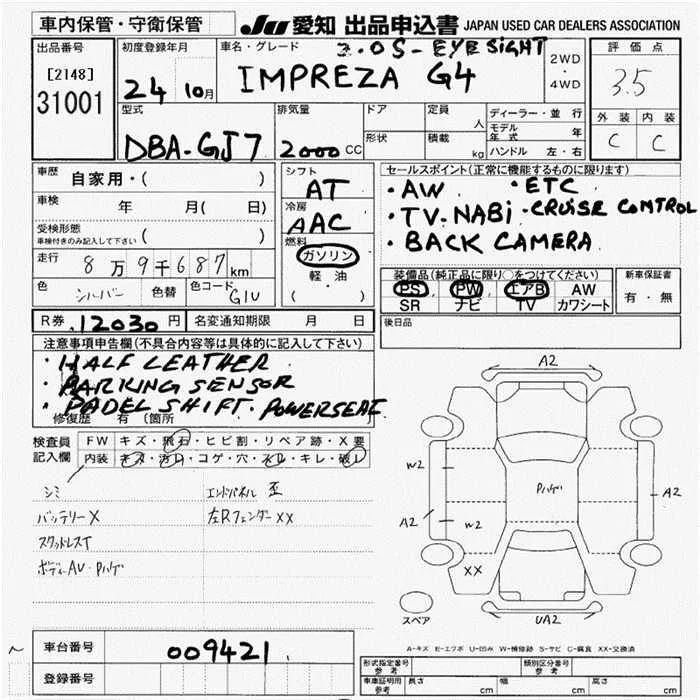 車内保管・守衛保管
JU 愛知 出品申込書 JAPAN USED CAR DEALERS ASSOCIATION
出品番号
[2148]
31001
初度登録年月
24 10月
車名・グレード
2.0S-EYE SIGHT
IMPREZA G4
2WD
・
4WD
評価点
3.5
外装 内装
C C
型式
DBA-GJ7
排気量
2000 CC
ドア
形状
定員
人
積載
kg
ディーラー・並行
モデル年式 年
ハンドル 左・右
車歴 自家用・( )
車検 年 月( 日)
受検形態
車検付きのみ記入して下さい ( )
走行 8万9千687km
色 シルバー 色替 色コード G1U
シフト
AT
冷房
AAC
燃料
ガソリン
軽・油
( )
セールスポイント(正常に機能するものに限ります)
・AW ・ETC
・TV-NABi・CRUISE CONTROL
・BACK CAMERA
装備品(純正品に限り○をつけてください)
PS PW エアB AW
SR ナビ TV カワシート
新車保証書
有・無
R券 12030円 名変通知期限 月 日
後日品
注意事項申告欄(不具合内容等は具体的に記入して下さい)
・HALF LEATHER
・PARKING SENSOR
・PADEL SHIFT・POWERSEAT
修復歴 有(箇所
検査員記入欄
FW キズ・飛石・ヒビ割・リペア跡・X要
内装 キズ・汚レ・コゲ・穴・スレ・キレ・破レ
シミ エンドパネル 歪
バッテリーX 左Rフェンダー XX
スタッドレスT
ボディーAU・Pハゲ
A2
W2
Pハゲ
A2
A2
W2
XX
スペア
UA2
A-キズ E-エクボ U-凹み W-補修跡 S-サビ C-腐食 XX-交換済
車台番号 009421
登録番号
形式指定番号 参考
類別区分番号 参考
車庫証明用 参考 長さ cm 幅 cm 高さ cm